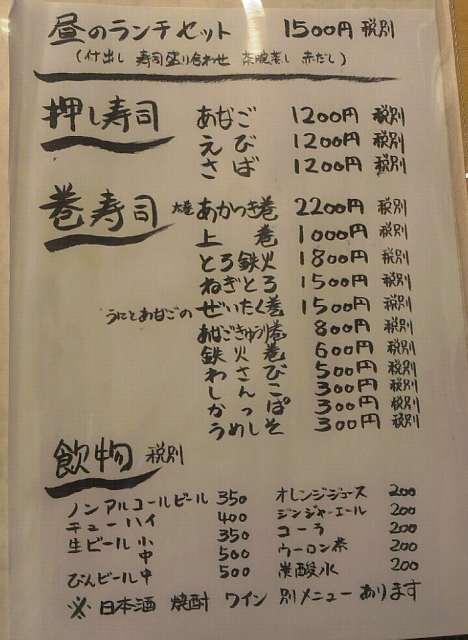 昼のランチセット 1500円 税別
(付出し 寿司盛り合わせ 茶碗蒸し 赤だし)
押し寿司 あなご 1200円 税別
えび 1200円 税別
さば 1200円 税別
巻寿司 大巻 あかつき巻 2200円 税別
上巻 1000円 税別
とろ鉄火 1800円 税別
ねぎとろ 1500円 税別
うにとあなごの ぜいたく巻 1500円 税別
あなごきゅうり巻 800円 税別
鉄火巻 600円 税別
わさび 500円 税別
しんこ 300円 税別
かっぱ 300円 税別
うめしそ 300円 税別
飲物 税別
ノンアルコールビール 350 オレンジジュース 200
チューハイ 400 ジンジャーエール 200
生ビール 小 350 コーラ 200
中 500 ウーロン茶 200
びんビール 中 500 炭酸水 200
※ 日本酒 焼酎 ワイン 別メニューあります